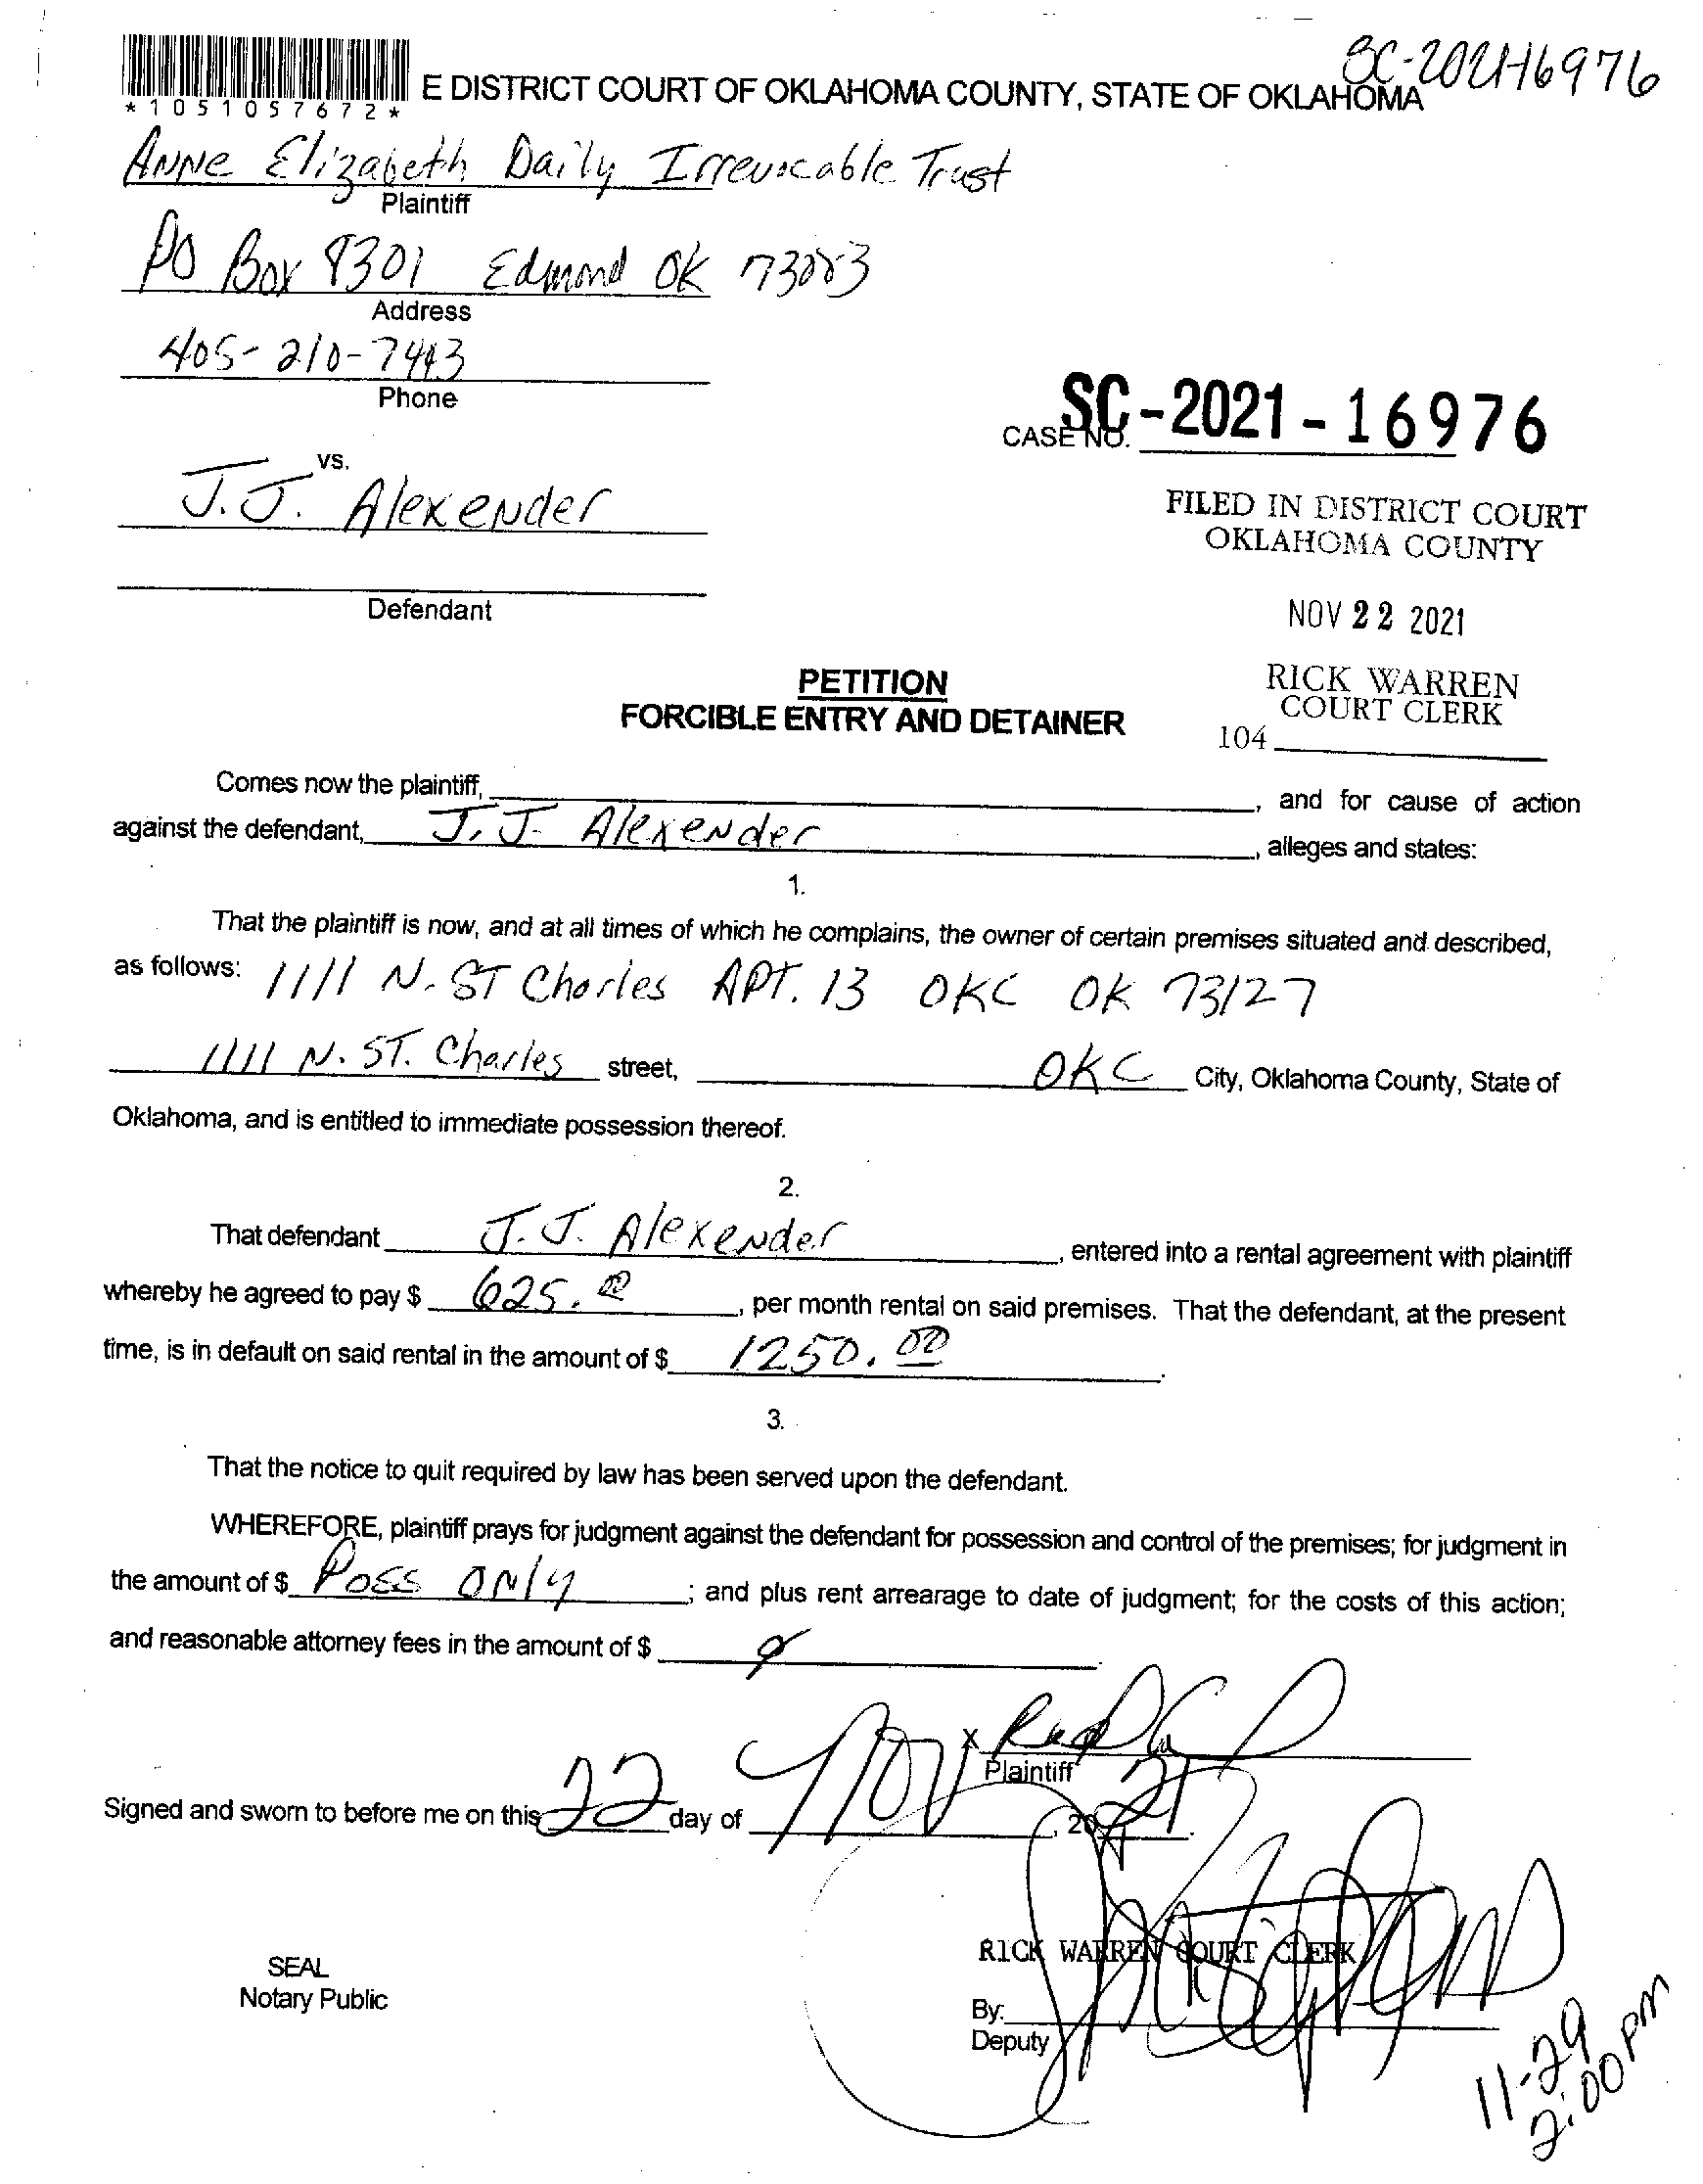 SC-2021-16976
*1051057672*
E DISTRICT COURT OF OKLAHOMA COUNTY, STATE OF OKLAHOMA
Anne Elizabeth Daily Irrevocable Trust
Plaintiff
PO Box 8301 Edmond OK 73083
Address
405-210-7443
Phone
CASE NO. SC-2021-16976
vs.
J.J. Alexender
Defendant
FILED IN DISTRICT COURT
OKLAHOMA COUNTY
NOV 22 2021
RICK WARREN
COURT CLERK
104
PETITION
FORCIBLE ENTRY AND DETAINER
Comes now the plaintiff, , and for cause of action
against the defendant, J.J. Alexender , alleges and states:
1.
That the plaintiff is now, and at all times of which he complains, the owner of certain premises situated and described,
as follows: 1111 N. ST Charles APT. 13 OKC OK 73127
1111 N. ST. Charles street, OKC City, Oklahoma County, State of
Oklahoma, and is entitled to immediate possession thereof.
2.
That defendant J.J. Alexender , entered into a rental agreement with plaintiff
whereby he agreed to pay $ 625.00 , per month rental on said premises. That the defendant, at the present
time, is in default on said rental in the amount of $ 1250.00 .
3.
That the notice to quit required by law has been served upon the defendant.
WHEREFORE, plaintiff prays for judgment against the defendant for possession and control of the premises; for judgment in
the amount of $ Poss ONly ; and plus rent arrearage to date of judgment; for the costs of this action;
and reasonable attorney fees in the amount of $ .
X
Plaintiff
Signed and sworn to before me on this 22 day of Nov , 2021.
RICK WARREN COURT CLERK
SEAL
Notary Public
By:
Deputy
11-29
2:00 PM